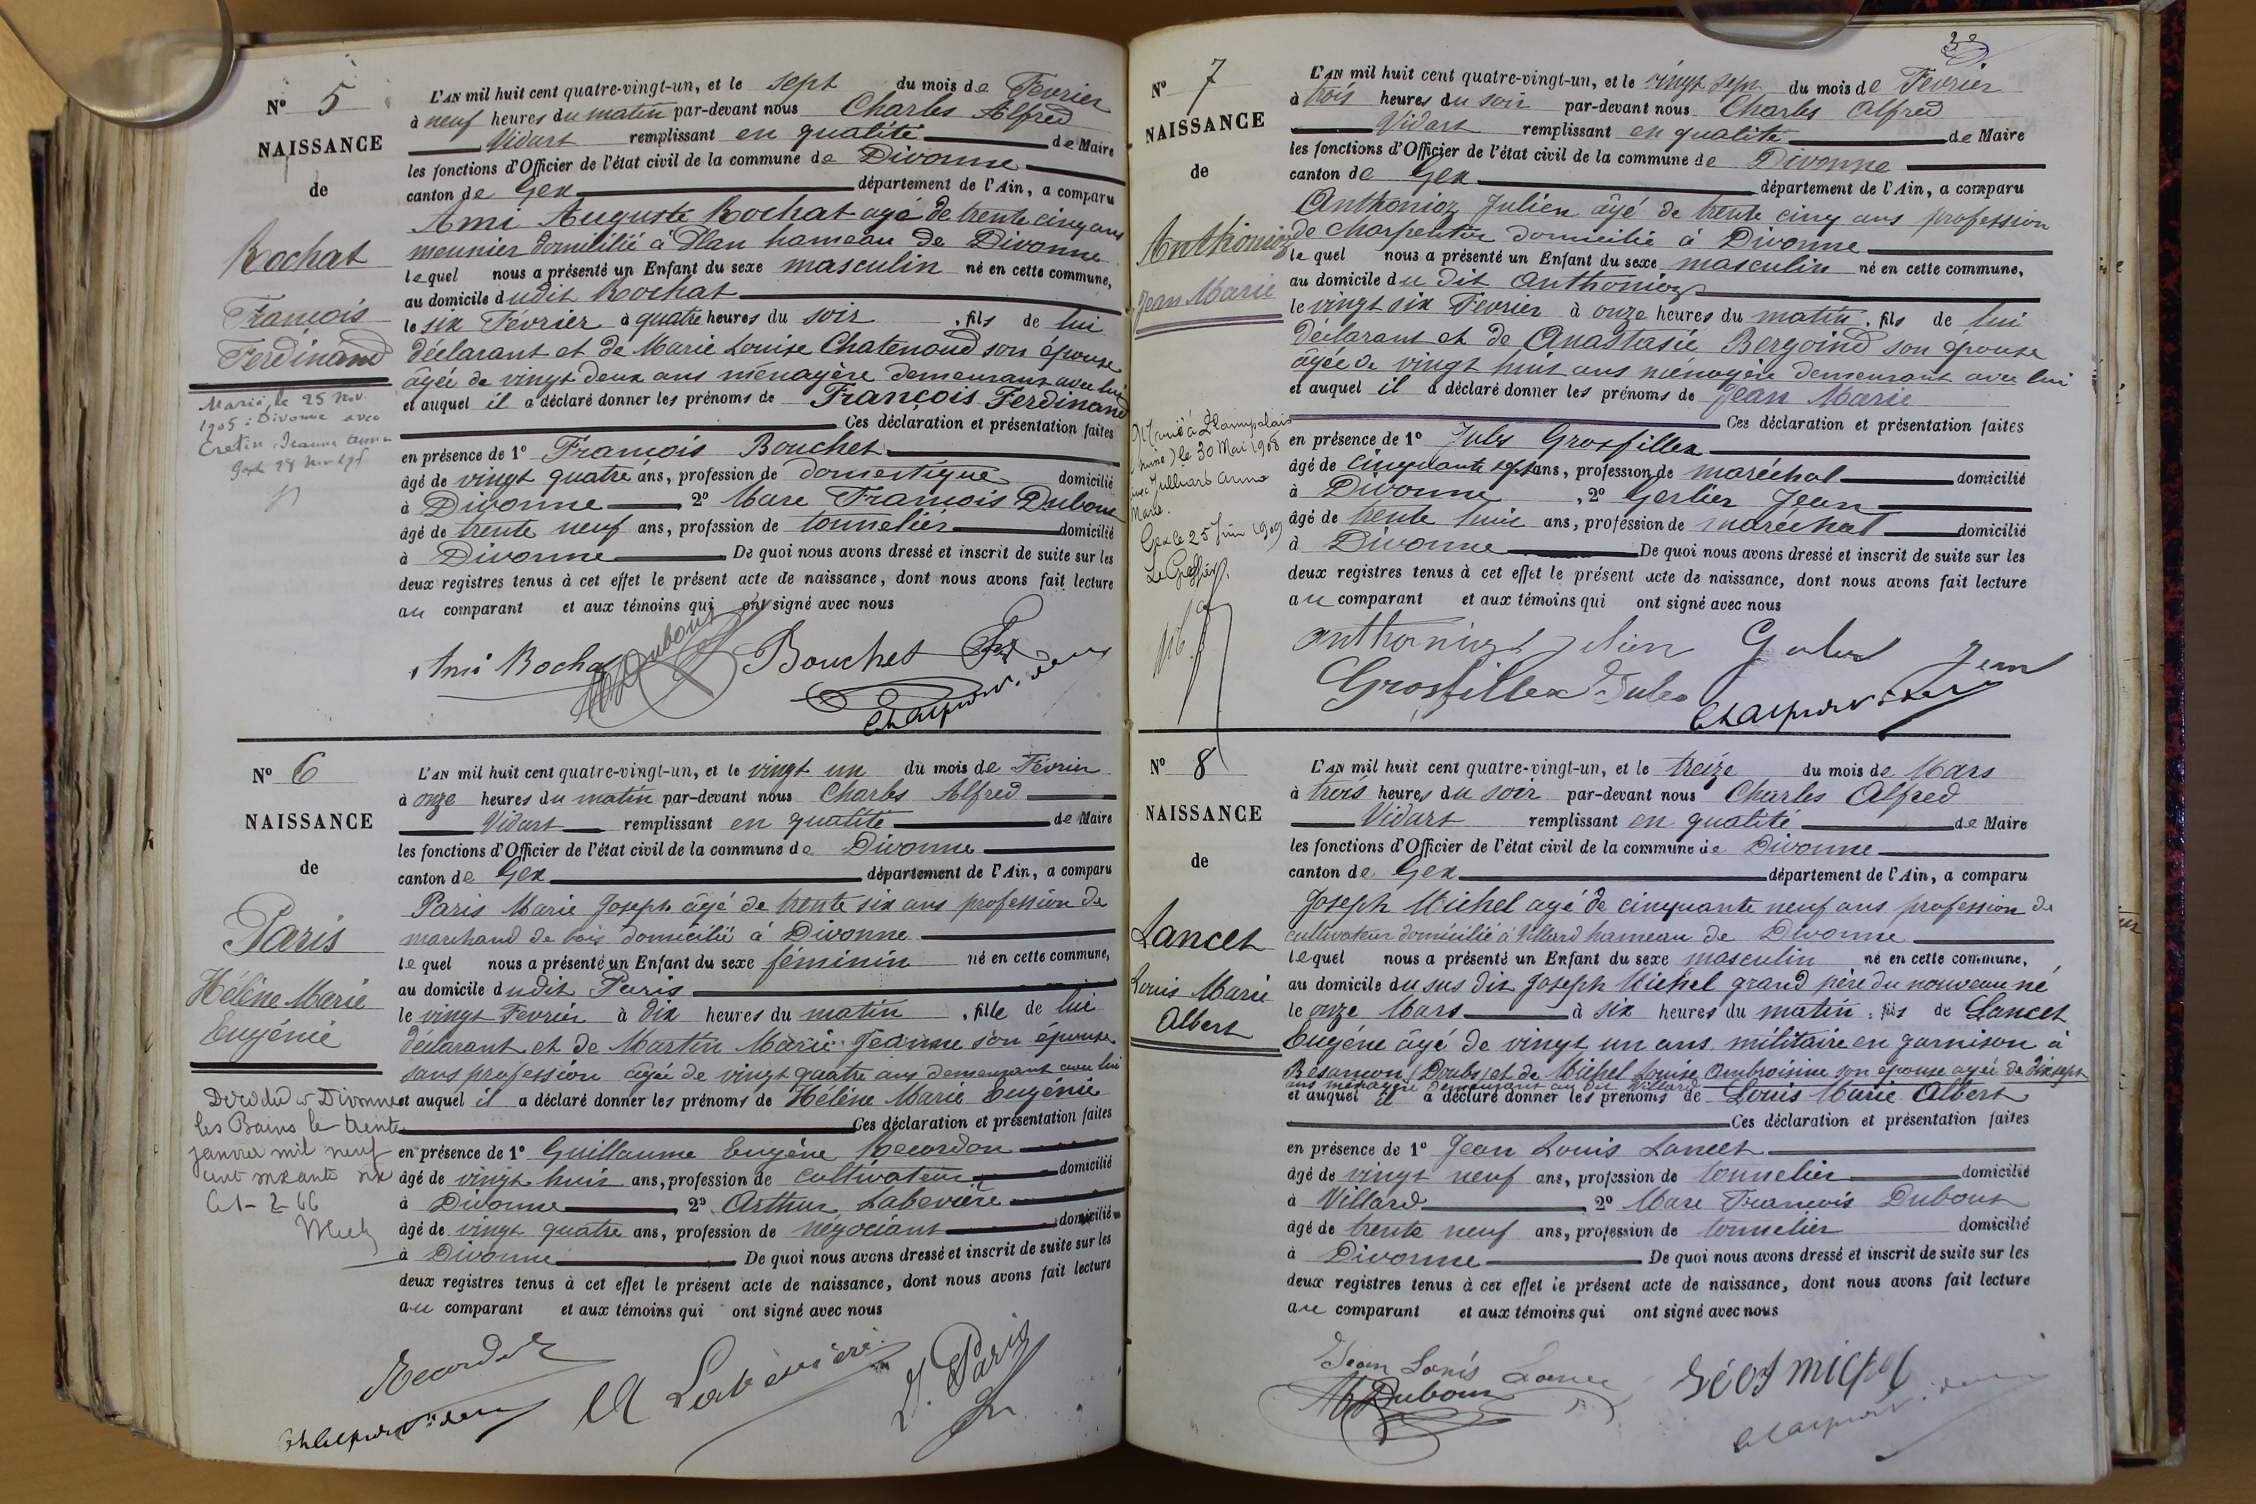 Nº 5
NAISSANCE
de
Rochat
François
Ferdinand
Marié le 25 Nov.
1905 à Divonne avec
Cretin Jeanne
L'AN mil huit cent quatre-vingt-un, et le sept du mois de Février
à neuf heures du matin par-devant nous Charles Alfred
Vidart remplissant en qualité de Maire
les fonctions d'Officier de l'état civil de la commune de Divonne
canton de Gex département de l'Ain, a comparu
Ami Auguste Rochat agé de trente cinq ans
meunier domicilié à Plan hameau de Divonne
lequel nous a présenté un Enfant du sexe masculin né en cette commune,
au domicile dudit Rochat
le six Février à quatre heures du soir, fils de lui
déclarant et de Marie Louise Chatenoud son épouse
âgée de vingt deux ans ménagère demeurant avec lui
et auquel il a déclaré donner les prénoms de François Ferdinand
Ces déclaration et présentation faites
en présence de 1º François Bouchet
âgé de vingt quatre ans, profession de domestique domicilié
à Divonne 2º Marc François Dubout
âgé de trente neuf ans, profession de tonnelier domicilié
à Divonne De quoi nous avons dressé et inscrit de suite sur les
deux registres tenus à cet effet le présent acte de naissance, dont nous avons fait lecture
au comparant et aux témoins qui ont signé avec nous
Ami Rochat Dubout Bouchet
Nº 6
NAISSANCE
de
Paris
Hélène Marie
Eugénie
Décédée à Divonne
les Bains le trente
janvier mil neuf
cent soixante six
L'AN mil huit cent quatre-vingt-un, et le vingt un du mois de Février
à onze heures du matin par-devant nous Charles Alfred
Vidart remplissant en qualité de Maire
les fonctions d'Officier de l'état civil de la commune de Divonne
canton de Gex département de l'Ain, a comparu
Paris Marie Joseph âgé de trente six ans profession de
marchand de bois domicilié à Divonne
lequel nous a présenté un Enfant du sexe féminin né en cette commune,
au domicile dudit Paris
le vingt Fevrier à dix heures du matin, fille de lui
déclarant et de Martin Marie Jeanne son épouse
sans profession âgée de vingt quatre ans demeurant avec lui
et auquel il a déclaré donner les prénoms de Hélène Marie Eugénie
Ces déclaration et présentation faites
en présence de 1º Guillaume Eugène Recordon
âgé de vingt huit ans, profession de cultivateur domicilié
à Divonne 2º Arthur Labevière
âgé de vingt quatre ans, profession de négociant domicilié
à Divonne De quoi nous avons dressé et inscrit de suite sur les
deux registres tenus à cet effet le présent acte de naissance, dont nous avons fait lecture
au comparant et aux témoins qui ont signé avec nous
Recordon A Labevière J. Paris
Nº 7
NAISSANCE
de
Anthonioz
Jean Marie
le 30 Mai 1908
Gex le 25 Juin 1909
Le Greffier
L'AN mil huit cent quatre-vingt-un, et le vingt sept du mois de Fevrier
à trois heures du soir par-devant nous Charles Alfred
Vidart remplissant en qualité de Maire
les fonctions d'Officier de l'état civil de la commune de Divonne
canton de Gex département de l'Ain, a comparu
Anthonioz Julien âgé de trente cinq ans profession
de charpentier domicilié à Divonne
lequel nous a présenté un Enfant du sexe masculin né en cette commune,
au domicile du dit Anthonioz
le vingt six Fevrier à onze heures du matin, fils de lui
déclarant et de Anastasie Bergoind son épouse
âgée de vingt huit ans ménagère demeurant avec lui
et auquel il a déclaré donner les prénoms de Jean Marie
Ces déclaration et présentation faites
en présence de 1º Jules Grosfillex
âgé de cinquante sept ans, profession de maréchal domicilié
à Divonne, 2º Gerlier Jean
âgé de trente huit ans, profession de maréchal domicilié
à Divonne De quoi nous avons dressé et inscrit de suite sur les
deux registres tenus à cet effet le présent acte de naissance, dont nous avons fait lecture
au comparant et aux témoins qui ont signé avec nous
anthonioz Jean
Grosfillex Jules
Nº 8
NAISSANCE
de
Lancet
Louis Marie
Albert
L'AN mil huit cent quatre-vingt-un, et le treize du mois de Mars
à trois heures du soir par-devant nous Charles Alfred
Vidart remplissant en qualité de Maire
les fonctions d'Officier de l'état civil de la commune de Divonne
canton de Gex département de l'Ain, a comparu
Joseph Michel agé de cinquante neuf ans profession de
cultivateur domicilié à Villard hameau de Divonne
lequel nous a présenté un Enfant du sexe masculin né en cette commune,
au domicile du sus dit Joseph Michel grand père du nouveau né
le onze Mars à six heures du matin, fils de Lancet
Eugéne âgé de vingt un ans militaire en garnison à
Besançon (Doubs) et de Michel Louise Ambroisine son épouse agée de dix sept
ans ménagère demeurant au dit Villard
et auquel il a déclaré donner les prénoms de Louis Marie Albert
Ces déclaration et présentation faites
en présence de 1º Jean Louis Lancet
âgé de vingt neuf ans, profession de tonnelier domicilié
à Villard 2º Marc François Dubout
âgé de trente neuf ans, profession de tonnelier domicilié
à Divonne De quoi nous avons dressé et inscrit de suite sur les
deux registres tenus à cet effet le présent acte de naissance, dont nous avons fait lecture
au comparant et aux témoins qui ont signé avec nous
Jean Louis Lancet michel
Dubout